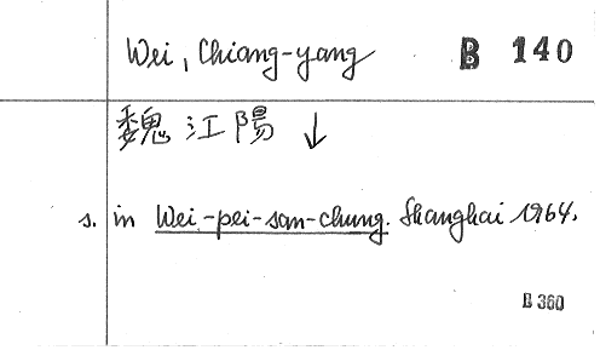 Wei, Chiang-yang B 140
魏江陽 ↓
s. in Wei-pei-san-chung. Shanghai 1964.
B 360